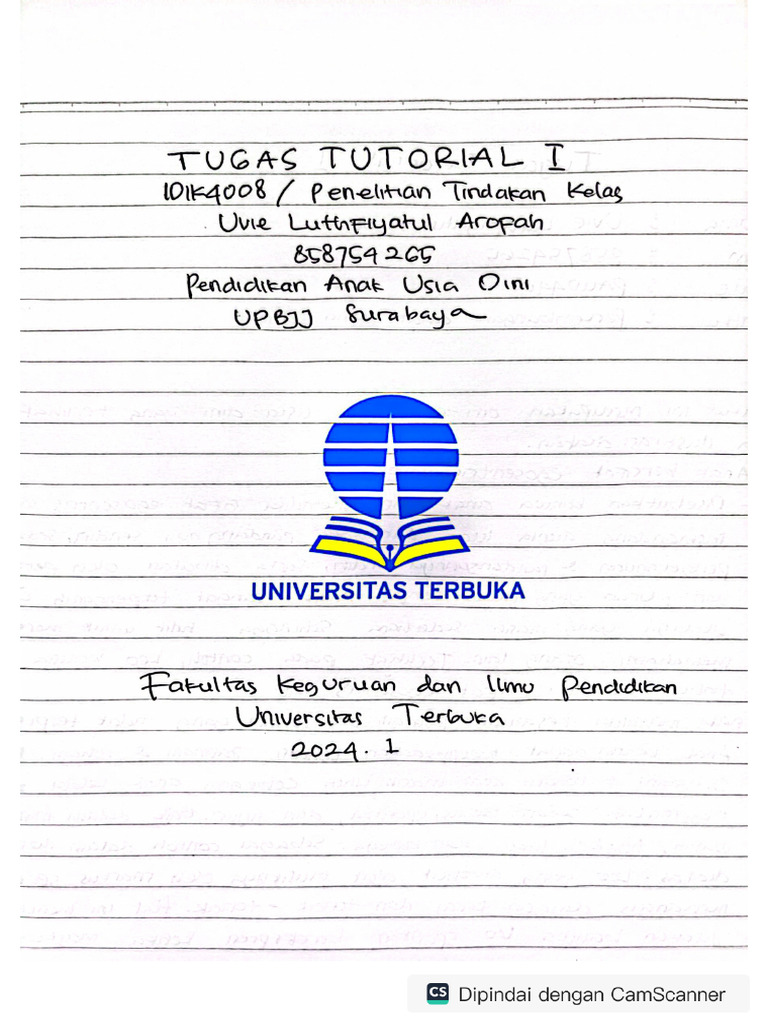 TUGAS TUTORIAL I
IDIK4008 / Penelitian Tindakan Kelas
Uvie Luthfiyatul Aropah
858754265
Pendidikan Anak Usia Dini
UPBJJ Surabaya
UNIVERSITAS TERBUKA
Fakultas Keguruan dan Ilmu Pendidikan
Universitas Terbuka
2024.1
CS Dipindai dengan CamScanner